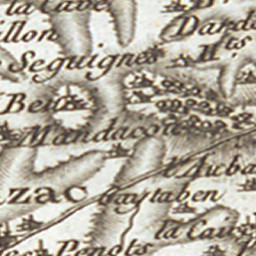 la Cave
llon
Darda
H.ts
Seguignes
Beu
Mandacou
d'Auba
zac
Gaytaben
la Caus
Penots